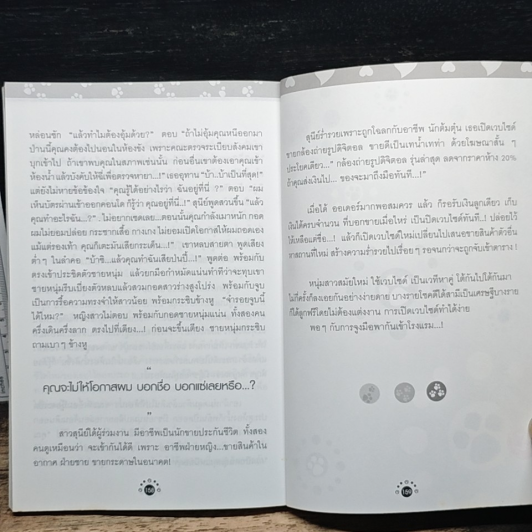 หล่อนซัก "แล้วทำไมต้องอุ้มด้วย?" ตอบ "ถ้าไม่อุ้มคุณหนีออกมา
ป่านนี้คุณคงต้องไปนอนในห้องขัง เพราะคณะตรวจระเบียบสังคมเขา
บุกเข้าไป ถ้าเขาพบคุณในสภาพเช่นนั้น ก่อนอื่นเขาต้องเอาคุณเข้า
ห้องน้ำแล้วบังคับให้ฉี่เพื่อตรวจหายา...!" เธออุทาน "บ้า..บ้าเป็นที่สุด!"
แต่ยังไม่หายข้อข้องใจ "คุณรู้ได้อย่างไรว่า ฉันอยู่ที่นี่ ?" ตอบ "ผม
เห็นบัตรผ่านเข้าออกคอนโด ก็รู้ว่า คุณอยู่ที่นี่...!" สุนีย์พูดสวนขึ้น "แล้ว
คุณทำอะไรฉัน...?" "ไม่อยากเชคเลย...ตอนนั้นคุณกำลังเมาหนัก กอด
ผมไม่ยอมปล่อย กระชากเสื้อ กางเกง ไม่ยอมเปิดโอกาสให้ผมถอดเอง
แม้แต่รองเท้า คุณก็เตะมันเสียกระเด็น...!" เขาหลบสายตา พูดเสียง
ต่ำๆ ในลำคอ "บ้าซิ...แล้วคุณทำฉันเสียป่นปี้...!" พูดต่อ พร้อมกับ
ตรงเข้าประชิดตัวชายหนุ่ม แล้วยกมือกำหมัดแน่นทำทีว่าจะทุบเขา
ชายหนุ่มรีบเบี่ยงตัวหลบแล้วสวมกอดสาวร่างสูงโปร่ง พร้อมกับจูบ
เป็นการรื้อความทรงจำให้สาวน้อย พร้อมกระซิบข้างหู "จำรอยจูบนี้
ได้ไหม?" หญิงสาวไม่ตอบ พร้อมกับกอดชายหนุ่มแน่น ทั้งสองคน
ครึ่งเดินครึ่งลาก ตรงไปที่เตียง...! ก่อนจะขึ้นเตียง ชายหนุ่มกระซิบ
ถามเบาๆ ข้างหู
"
คุณจะไม่ให้โอกาสผม บอกชื่อ บอกแซ่เลยหรือ...?
"
สาวสุนีย์ได้ผู้ร่วมงาน มีอาชีพเป็นนักขายประกันชีวิต ทั้งสอง
คนดูเหมือนว่า จะเข้ากันได้ดี เพราะ อาชีพฝ่ายหญิง...ขายสินค้าใน
อากาศ ฝ่ายชาย ขายกระดาษในอนาคต!
158
สุนีย์ร่ำรวยเพราะถูกโฉลกกับอาชีพ นักต้มตุ๋น เธอเปิดเวบไซต์
ขายกล้องถ่ายรูปดิจิตอล ขายดีเป็นเทน้ำเทท่า ด้วยโฆษณาสั้น ๆ
ประโยคเดียว..." กล้องถ่ายรูปดิจิตอล รุ่นล่าสุด ลดจากราคาห้าง 20%
ถ้าคุณส่งเงินไป... ของจะมาถึงมือทันที...!"
เมื่อได้ ออเดอร์มากพอสมควร แล้ว ก็รอรับเงินลูกเดียว เก็บ
เงินได้ครบจำนวน ที่บอกขายเมื่อไหร่ เป็นปิดเวบไซต์ทันที...! ปล่อยไว้
ให้เหลือแต่ชื่อ...! แล้วก็เปิดเวบไซต์ใหม่เปลี่ยนไปเสนอขายสินค้าตัวอื่น
หาสถานที่ใหม่ สร้างความร่ำรวยไปเรื่อยๆ รอจนกว่าจะถูกจับเข้าตาราง !
หนุ่มสาวสมัยใหม่ ใช้เวบไซต์ เป็นเวทีหาคู่ ได้กันไปได้กันมา
ไม่กี่ครั้งก็ลงเอยกันอย่างง่ายดาย บางรายโชคดีได้สามีเป็นเศรษฐีบางราย
ก็ได้ลูกฟรีโดยไม่ต้องแต่งงาน การเปิดเวบไซต์ทำได้ง่าย
พอๆ กับการจูงมือพากันเข้าโรงแรม...!
159